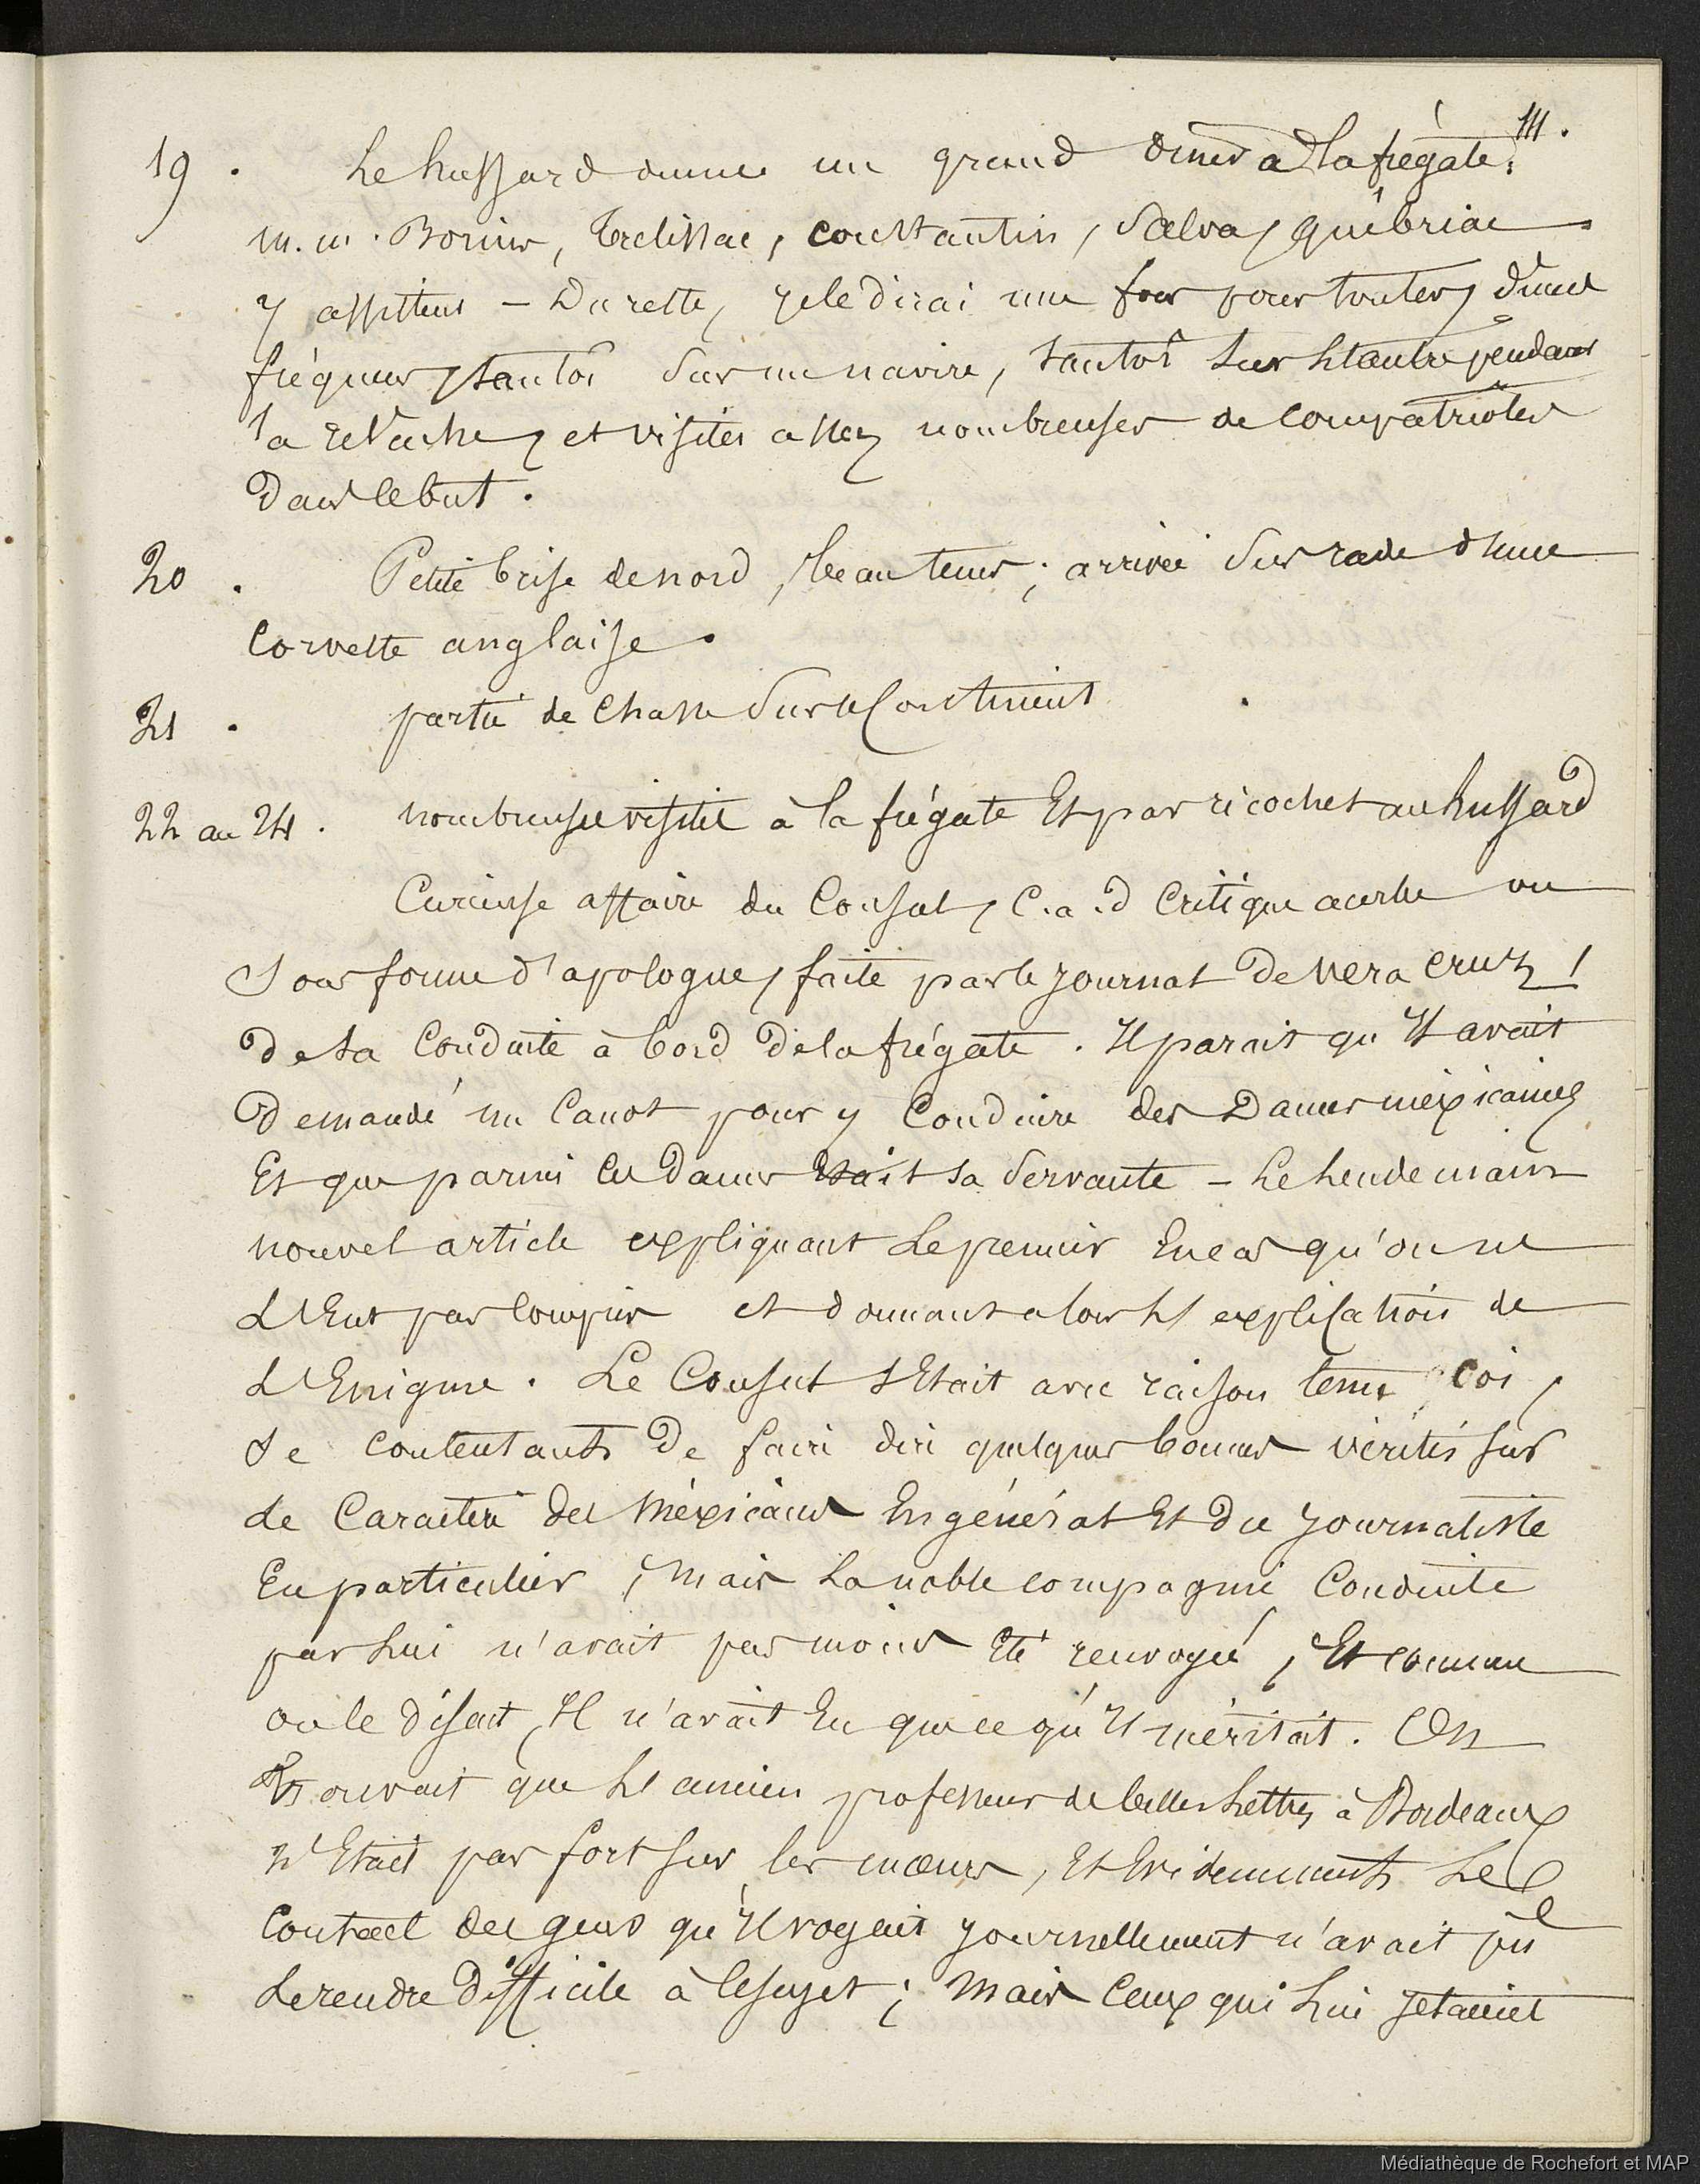 111.
19. Le hussard donne un grand diner à la frégate.
m.m. Borius, Trelissac, Constantin, Salva, Québriac
y assistent – Du reste, je le dirai une fois pour toutes, diners
fréquens, tantôt sur un navire, tantôt sur l'autre pendant
la relache, et visites assez nombreuses de compatriotes
dans le but.
20. Petite brise de nord, beau tems; arrivée sur rade d'une
corvette anglaise.
21. partie de chasse sur le Continent.
22 au 24. nombreuse visite à la frégate Et par ricochet au hussard
Curieuse affaire du Consul, C.a.d critique acerbe ou
sous forme d'apologue, faite par le journal de vera cruz,
de sa Conduite à bord de la frégate. Il parait qu'Il avait
demandé un Canot pour y Conduire des Dames méxicaines
Et que parmi ces dames Etait sa servante – Le lendemain
nouvel article expliquant le premier En cas qu'on ne
l'Eut pas compris et donnant alors l'explication de
l'Enigme. Le Consul s'Etait avec raison tenu coi,
se contentant de faire dire quelques bonnes vérités sur
le Caractère des Méxicains En général Et du journaliste
En particulier, mais la noble compagnie Conduite
par lui n'avait pas moins Eté renvoyée, Et comme
on le disait, Il n'avait Eu que ce qu'Il méritait. On
trouvait que l'ancien professeur de belles lettres à Bordeaux
n'Etait pas fort sur les mœurs, Et Evidemment Le
Contact des gens qu'Il voyait journellement n'avait pu
le rendre difficile à ce sujet; mais Ceux qui lui jetaient
Médiathèque de Rochefort et MAP